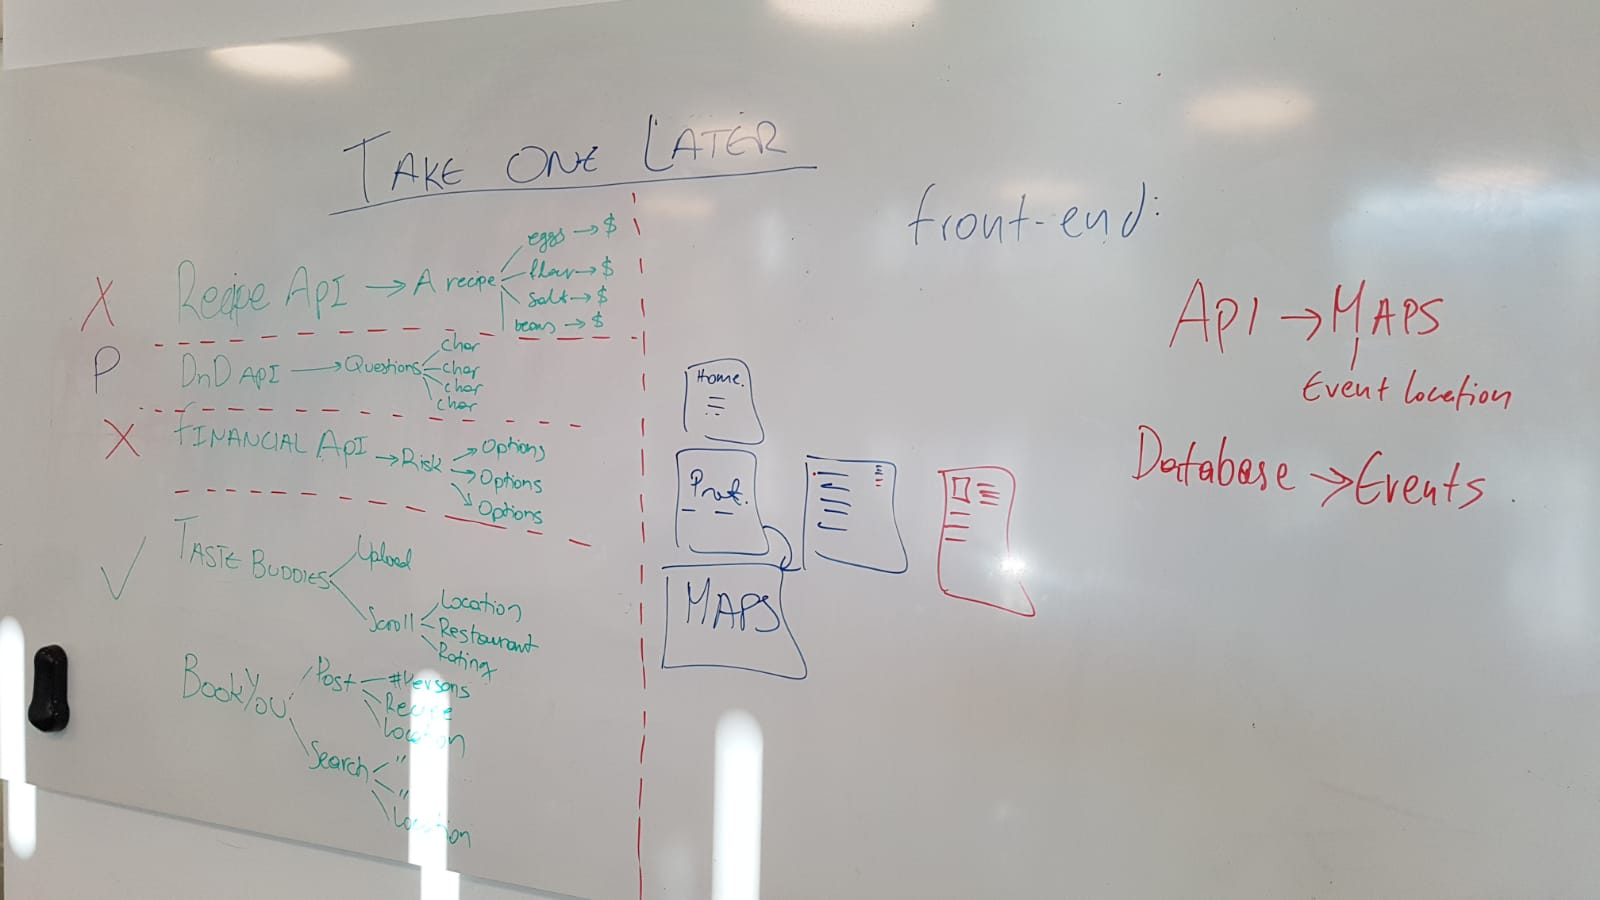 TAKE ONE LATER
X Recipe ApI → A recipe
eggs → $
flour → $
salt → $
beans → $
P DnD API → Questions
char
char
char
char
X FINANCIAL ApI → Risk
→ Options
→ Options
→ Options
✓ TASTE BUDDIES
Upload
Scroll
Location
Restaurant
Rating
BookYou
Post
#Persons
Recipe
Location
Search
"
"
Location
Home.
MAPS
front-end:
ApI → MAPS
Event location
Database → Events